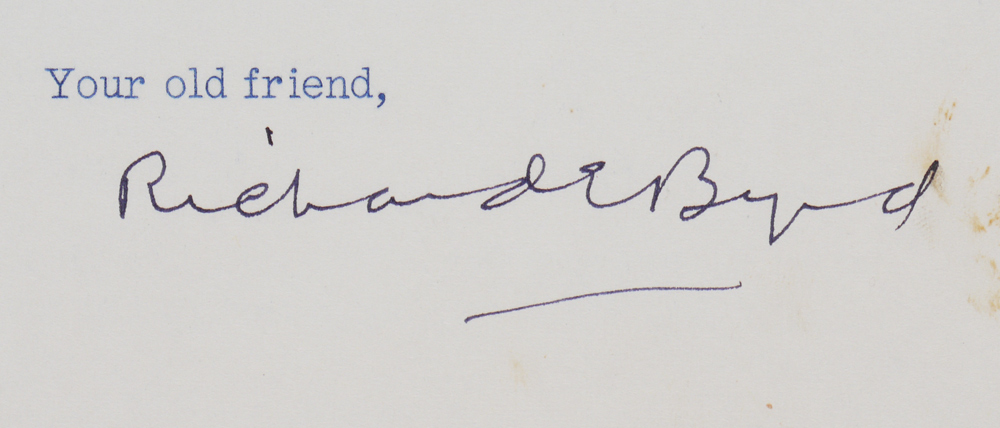 Your old friend,
Richard E Byrd